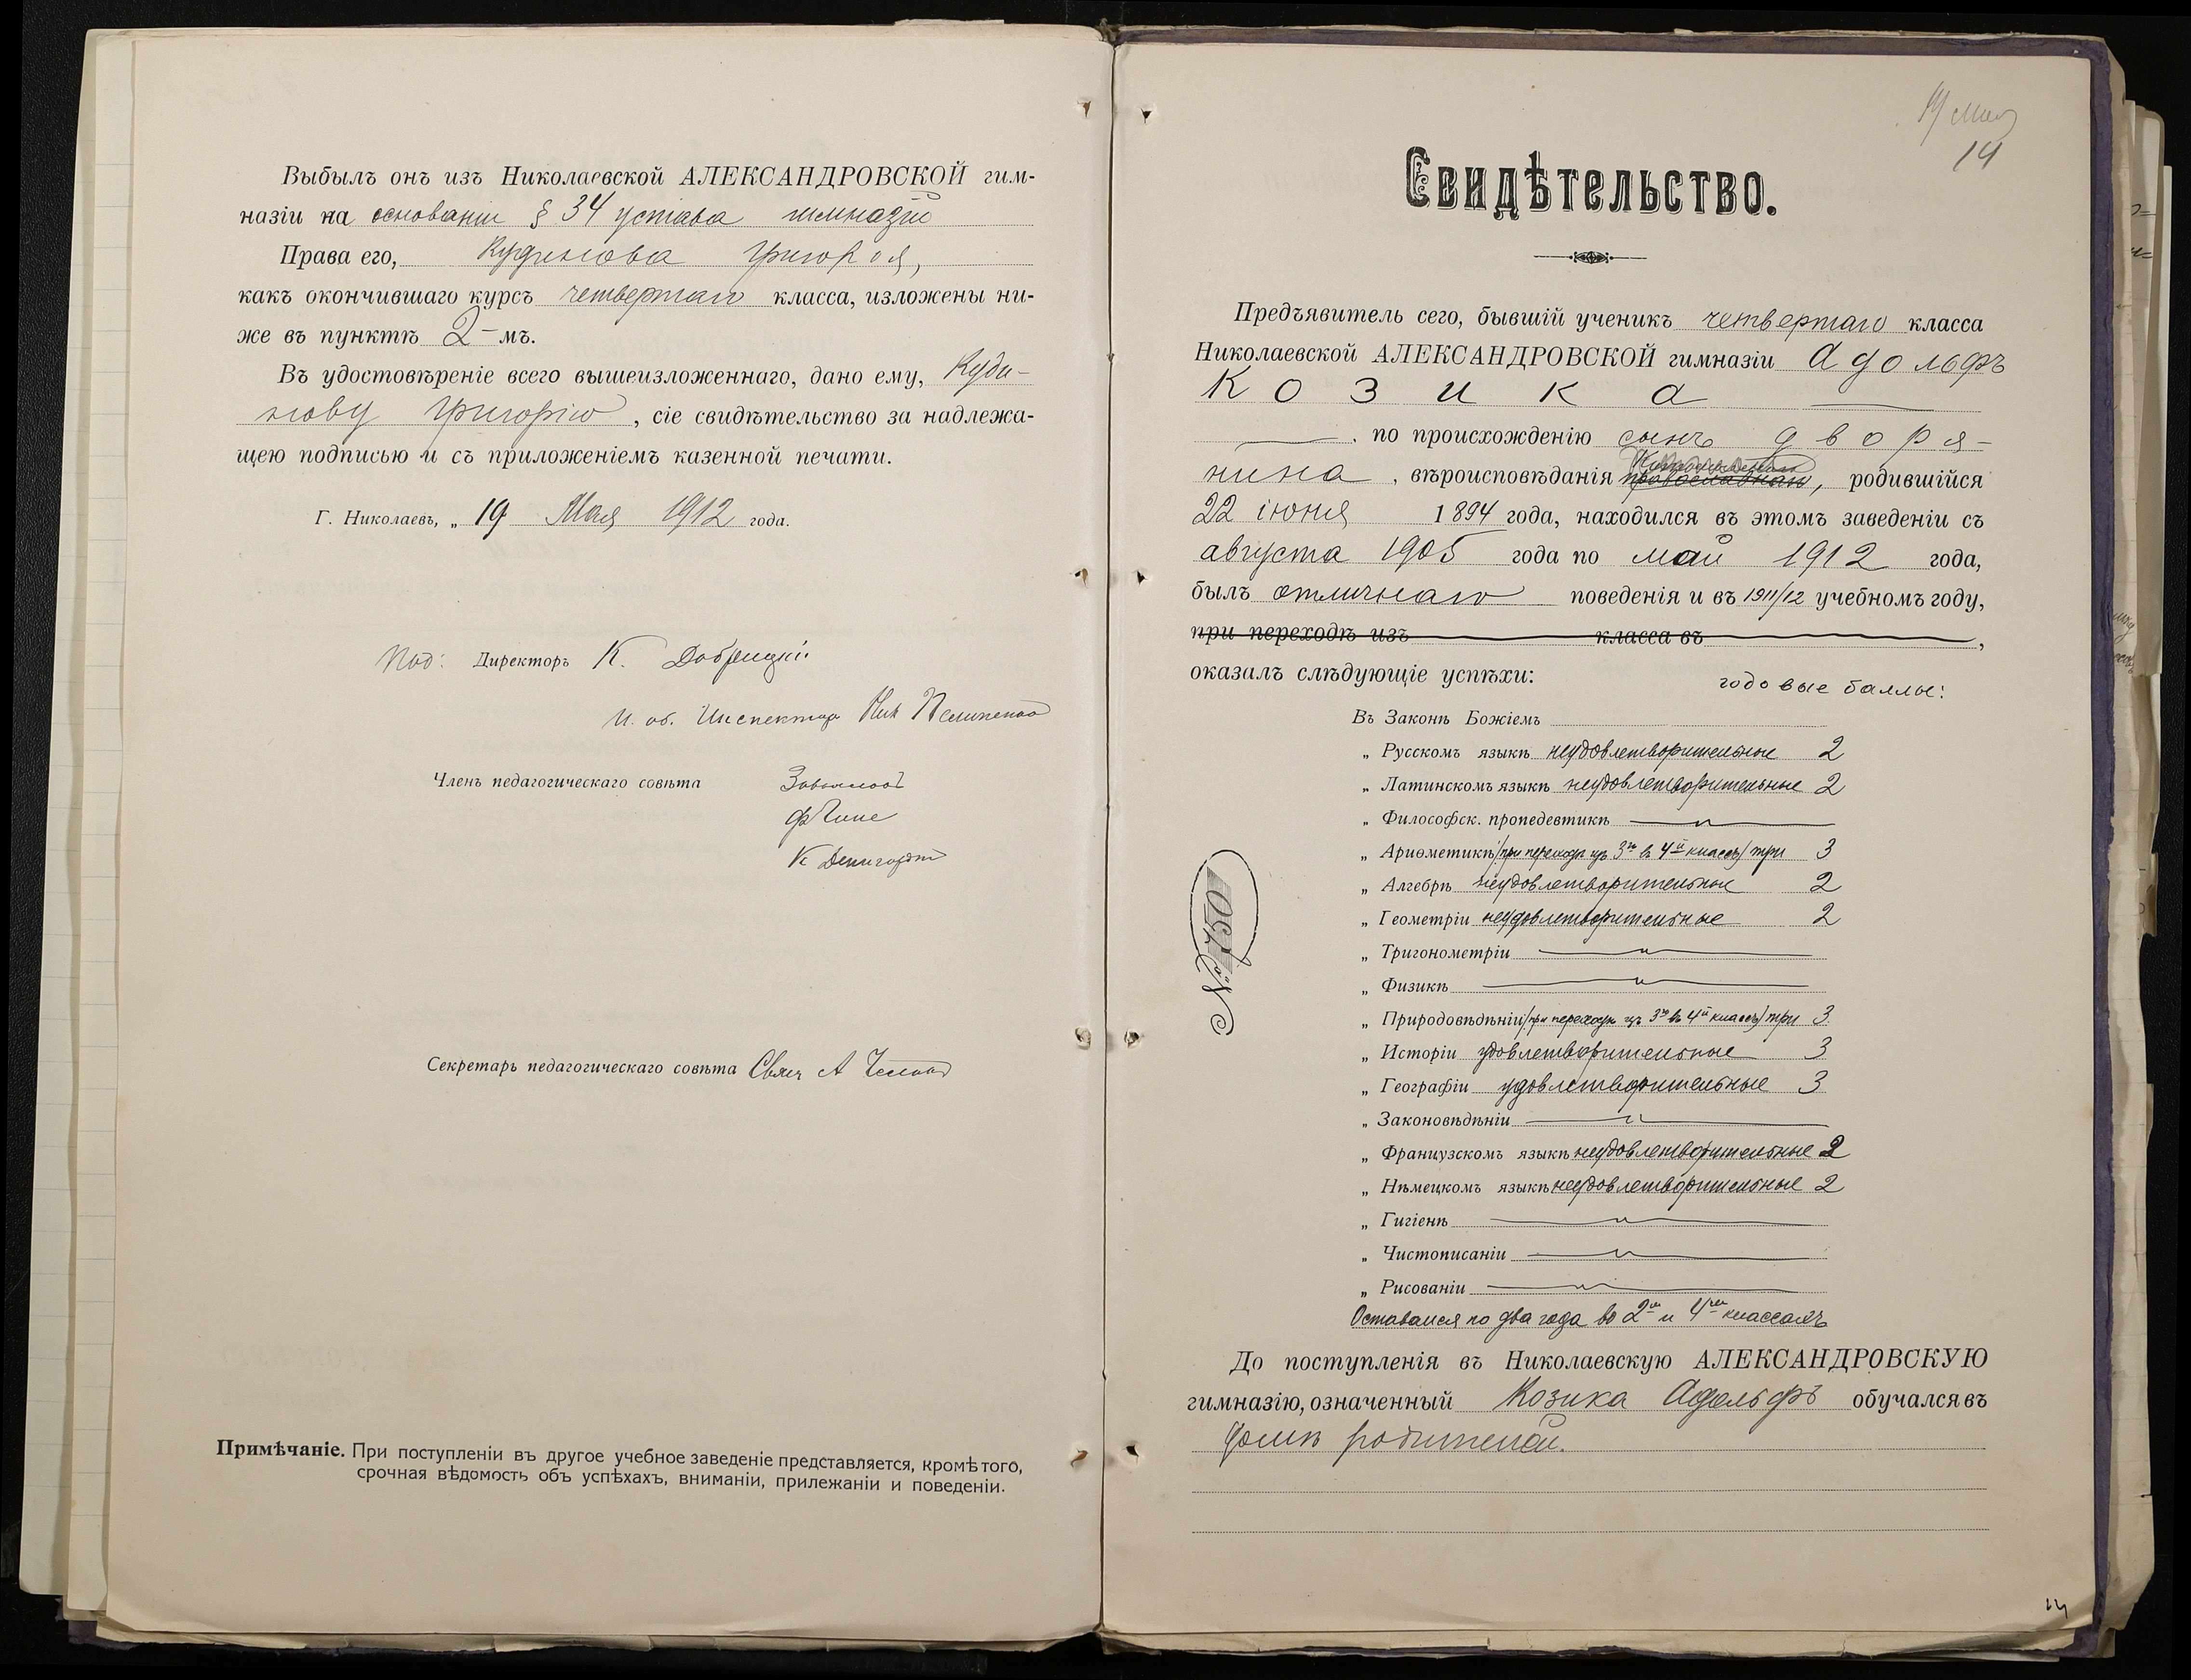 Выбылъ онъ изъ Николаевской АЛЕКСАНДРОВСКОЙ гим-
назіи на основаніи § 34 устава гимназій
Права его, Кудинова Григорія,
какъ окончившаго курсъ четвертаго класса, изложены ни-
же въ пунктѣ 2-мъ.
Въ удостовѣреніе всего вышеизложеннаго, дано ему, Куди-
нову Григорію, сіе свидѣтельство за надлежа-
щею подписью и съ приложеніемъ казенной печати.
Г. Николаевъ, „ 19 Мая 1912 года.
Под: Директоръ К. Добрицкій
И. об. Инспектора Ник
Членъ педагогическаго совѣта
К
Секретарь педагогическаго совѣта Свящ А
Примѣчаніе. При поступленіи въ другое учебное заведеніе представляется, кромѣ того,
срочная вѣдомость объ успѣхахъ, вниманіи, прилежаніи и поведеніи.
14
Свидѣтельство.
Предъявитель сего, бывшій ученикъ четвертаго класса
Николаевской АЛЕКСАНДРОВСКОЙ гимназіи Адольфъ
Козика
по происхожденію сынъ дворя-
нина, вѣроисповѣданія православнаго, родившійся
22 іюня 1894 года, находился въ этомъ заведеніи съ
августа 1905 года по май 1912 года,
былъ отличнаго поведенія и въ 1911/12 учебномъ году,
при переходѣ изъ класса въ ,
оказалъ слѣдующіе успѣхи: годовые баллы:
Въ Законѣ Божіемъ
„ Русскомъ языкѣ неудовлетворительные 2
„ Латинскомъ языкѣ неудовлетворительные 2
„ Философск. пропедевтикѣ — „ —
„ Ариѳметикѣ /при переходѣ изъ 3го въ 4й классъ/ три 3
„ Алгебрѣ неудовлетворительные 2
„ Геометріи неудовлетворительные 2
„ Тригонометріи — „ —
„ Физикѣ — „ —
„ Природовѣдѣніи /при переходѣ изъ 3го въ 4й классъ/ три 3
„ Исторіи удовлетворительные 3
„ Географіи удовлетворительные 3
„ Законовѣдѣніи — „ —
„ Французскомъ языкѣ неудовлетворительные 2
„ Нѣмецкомъ языкѣ неудовлетворительные 2
„ Гигіенѣ — „ —
„ Чистописаніи — „ —
„ Рисованіи — „ —
Оставался по два года во 2мъ и 4мъ классахъ
До поступленія въ Николаевскую АЛЕКСАНДРОВСКУЮ
гимназію, означенный Козика Адольфъ обучался въ
домѣ родителей.
№ 1050